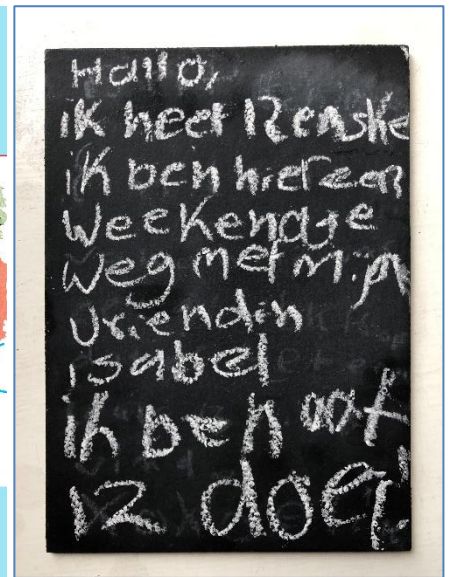 Hallo,
ik heet Renske
ik ben hier een
weekendje
weg met mijn
vriendin
isabel
ik ben
12 doei!